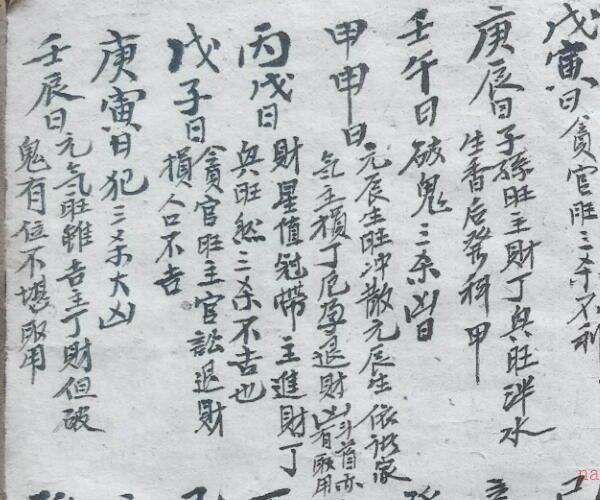 戊寅日貪官旺三杀不利
庚辰日子孫旺主財丁與旺泮水
生香后發科甲
壬午日破鬼三杀凶日
甲申日元辰生旺冲散元辰生依諸家
氣主損丁厄孕退財凶斗首亦
有取用
丙戌日財星值冠帶主進財丁
與旺然三杀不吉也
戊子日貪官旺主官訟退財
損人口不吉
庚寅日犯三杀大凶
壬辰日元氣旺雖吉主丁財但破
鬼有位不堪取用
na